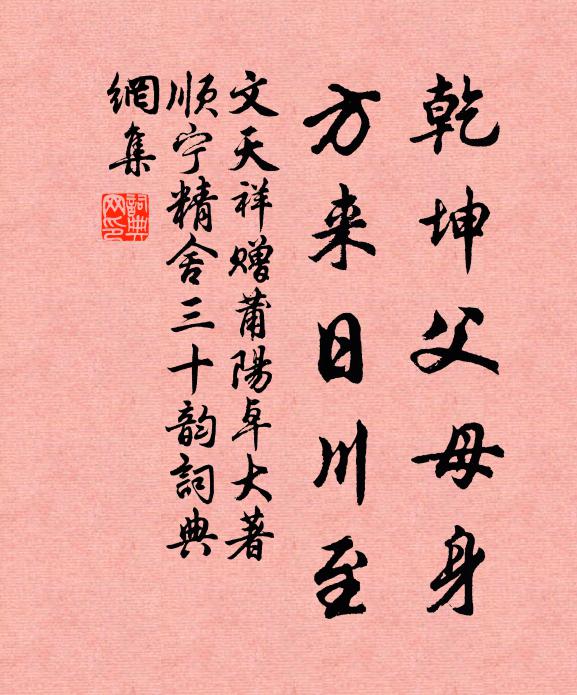 乾坤父母身
方来日川至
文天祥赠莆陽卓大著
順宁精舍三十韵詞典
網集
詞典
网印